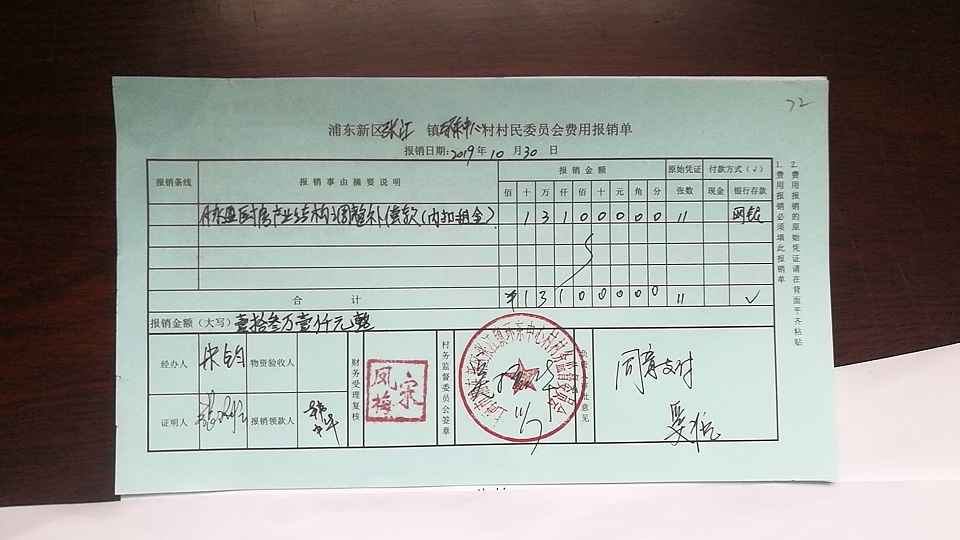 22
浦东新区张江 镇环东中心村村民委员会费用报销单
报销日期:2019年10月30日
报销条线 报销事由摘要说明 报销金额 原始凭证 付款方式(√)
佰 十 万 仟 佰 十 元 角 分 张数 现金 银行存款
产业结构调整补偿款(内扣租金) 1 3 1 0 0 0 0 0 11 网银
合 计 ¥ 1 3 1 0 0 0 0 0 11 √
报销金额(大写)壹拾叁万壹仟元整
经办人 物资验收人
证明人 报销领款人
财务受理复核
宗凤梅
村务监督委员会签章
张江镇环东中心村村务监督委员会
11/7
批意见
同意支付
1.费用报销必须填此报销单
2.费用报销的原始凭证请在背面平齐粘贴